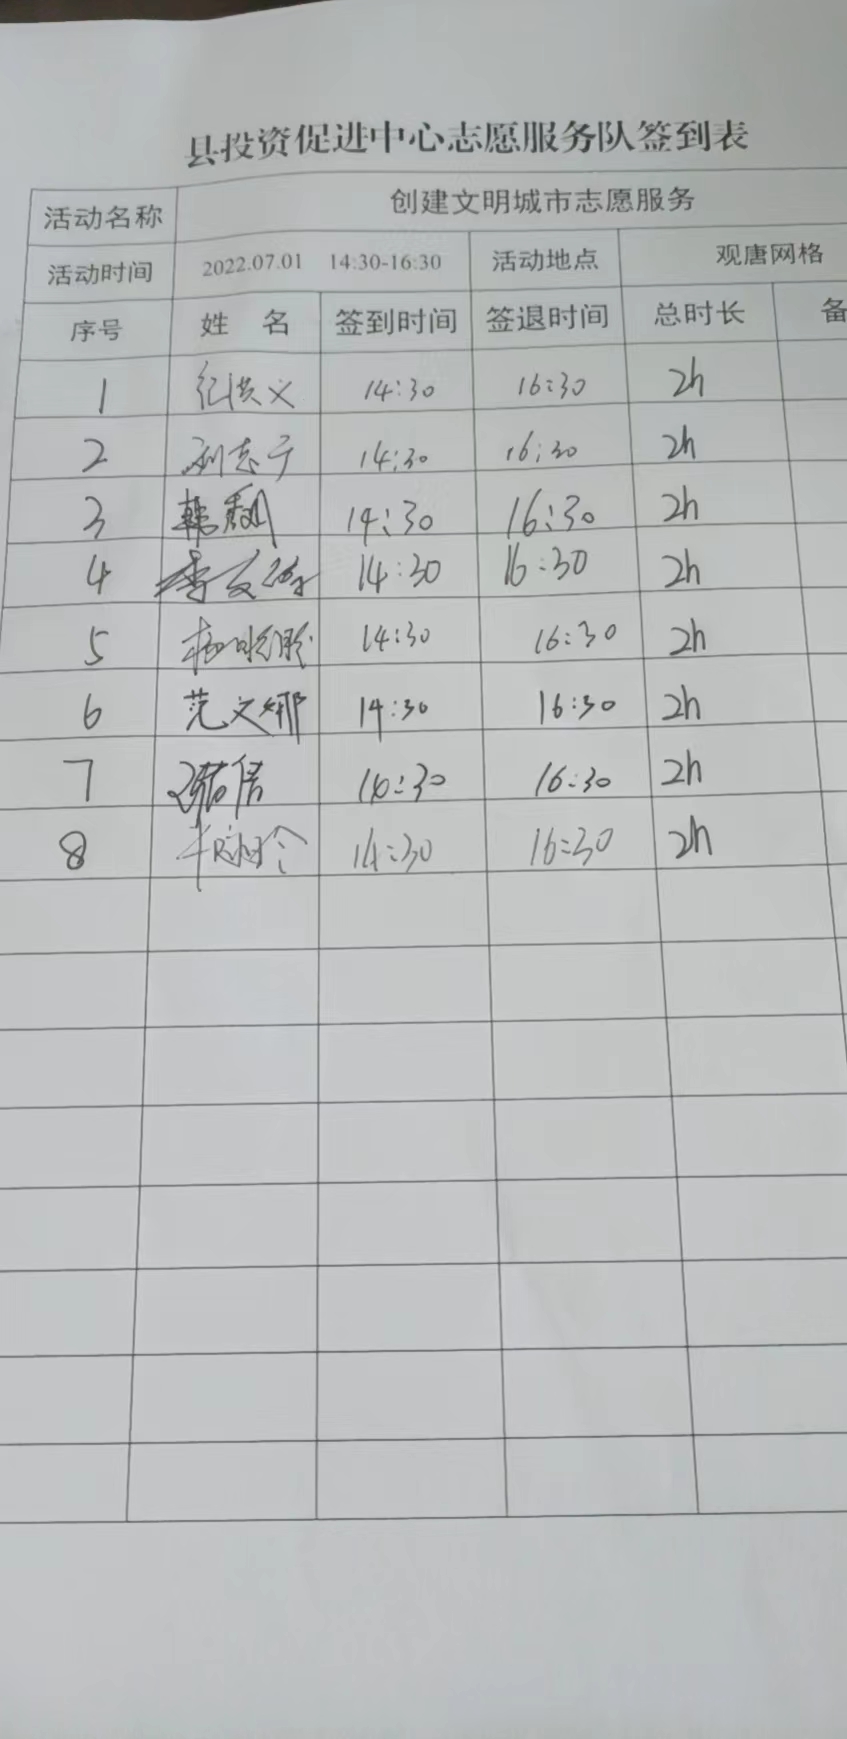 县投资促进中心志愿服务队签到表
活动名称 创建文明城市志愿服务
活动时间 2022.07.01 14:30-16:30 活动地点 观唐网格
序号 姓 名 签到时间 签退时间 总时长 备
1 纪洪义 14:30 16:30 2h
2 刘志于 14:30 16:30 2h
3 韩 14:30 16:30 2h
4 李文 14:30 16:30 2h
5 杨晓聪 14:30 16:30 2h
6 范文娜 14:30 16:30 2h
7 14:30 16:30 2h
8 14:30 16:30 2h